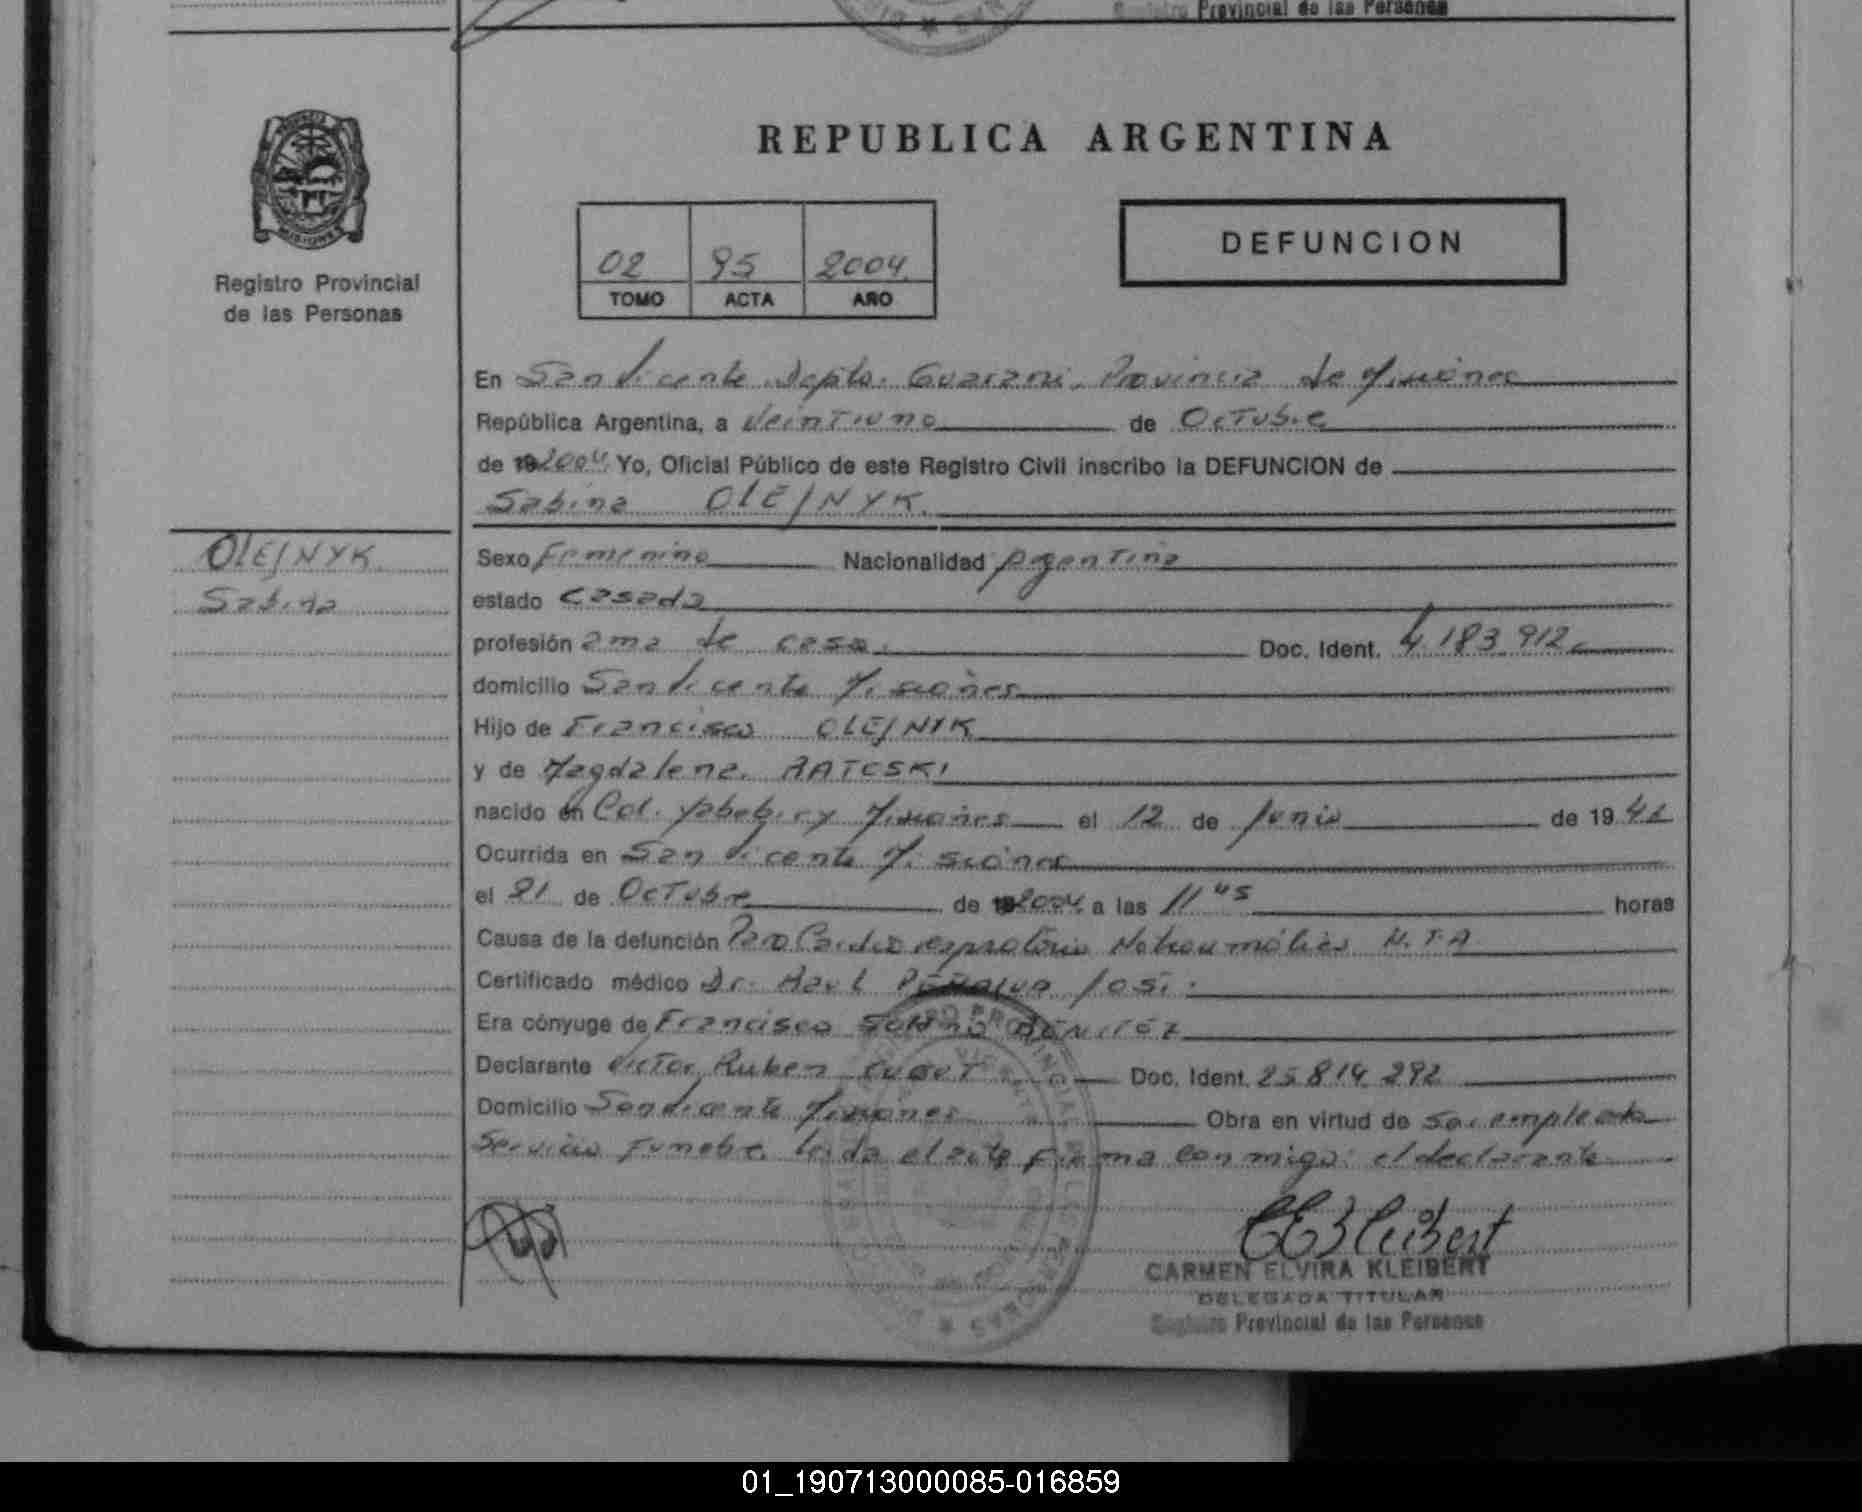 Registro Provincial de las Personas
PROVINCIA
MISIONES
Registro Provincial
de las Personas
REPUBLICA ARGENTINA
02 95 2004
TOMO ACTA AÑO
DEFUNCION
En San Vicente Depto. Guarani, Provincia de Misiones
República Argentina, a Veintiuno de Octubre
de 19 2004 Yo, Oficial Público de este Registro Civil inscribo la DEFUNCION de
Sabina OLEJNYK.
OLEJNYK
Sabina
Sexo Femenino Nacionalidad Argentina
estado casada
profesión ama de casa. Doc. Ident. 4.183.912
domicilio San Vicente Misiones
Hijo de Francisco OLEJNYK
y de Magdalena RATESKI
nacido en Col. Yabebiry Misiones el 12 de Junio de 19
Ocurrida en San Vicente Misiones
el 21 de Octubre de 2004 a las 11 45 horas
Causa de la defunción Paro Cardio respiratorio No traumático N.T.A
Certificado médico Dr. Raul José.
Era cónyuge de Francisco BENITEZ
Declarante Victor Ruben Doc. Ident. 25.814.292
Domicilio San Vicente Misiones Obra en virtud de ser empleado
Servicio Funebre. Leida el acta firma conmigo: el declarante
CEKleibert
CARMEN ELVIRA KLEIBERT
DELEGADA TITULAR
Registro Provincial de las Personas
01_190713000085-016859